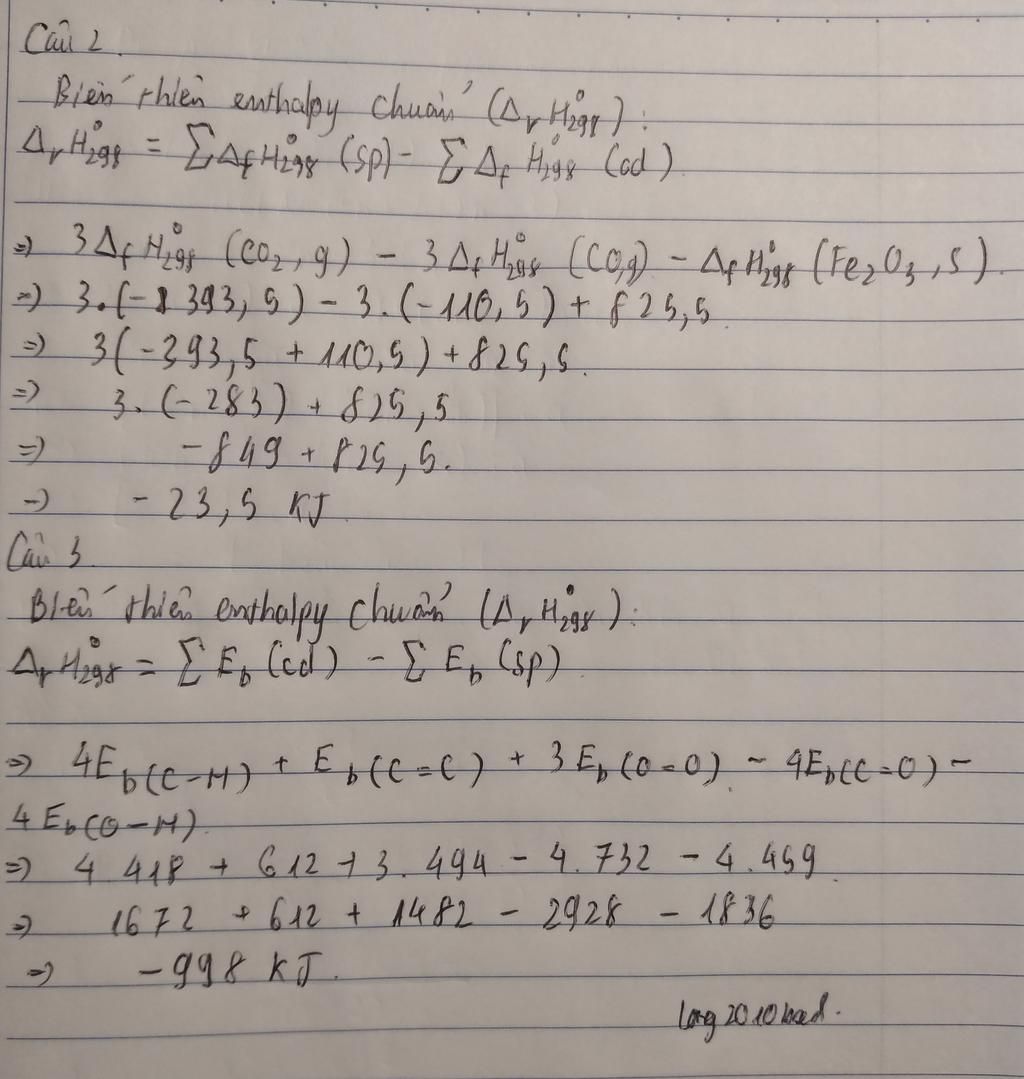 Câu 2.
Biến thiên enthalpy chuẩn (ΔrH°298):
ΔrH°298 = ΣΔfH°298 (sp) - ΣΔf H°298 (cđ)
=> 3ΔfH°298 (CO2, g) - 3ΔfH°298 (CO,g) - ΔfH°298 (Fe2O3, s).
=> 3.(-393,5) - 3.(-110,5) + 825,5
=> 3(-393,5 + 110,5) + 825,5.
=> 3.(-283) + 825,5
=> -849 + 825,5.
=> -23,5 KJ
Câu 3.
Biến thiên enthalpy chuẩn (ΔrH°298):
ΔrH°298 = ΣEb (cđ) - ΣEb (sp)
=> 4Eb(C-H) + Eb(C=C) + 3Eb(O=O) - 4Eb(C=O) -
4Eb(O-H)
=> 4.418 + 612 + 3.494 - 4.732 - 4.459
=> 1672 + 612 + 1482 - 2928 - 1836
=> -998 KJ.